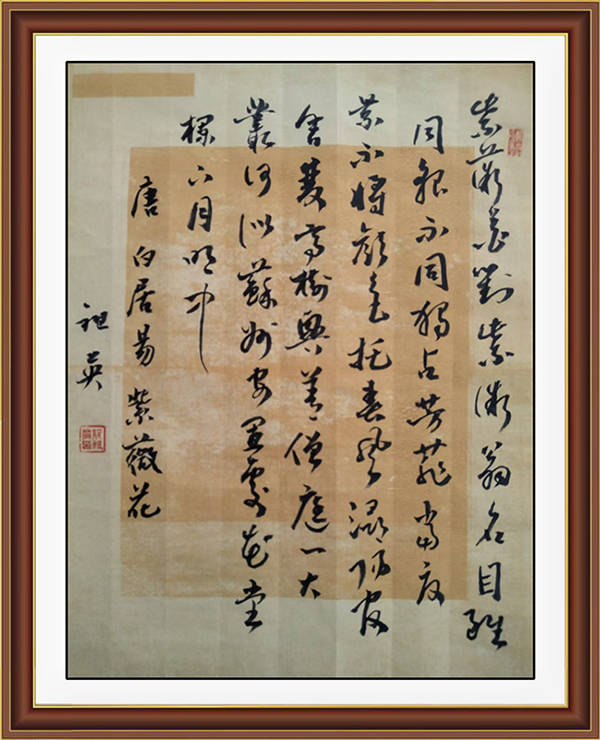 紫薇花對紫微翁名目雖
同貌不同獨占芳菲當夏
景不將顏色托春風潯陽官
舍雙高樹興善僧庭一大
叢何似蘇州安置處花堂
欄下月明中
唐白居易紫薇花
祖英